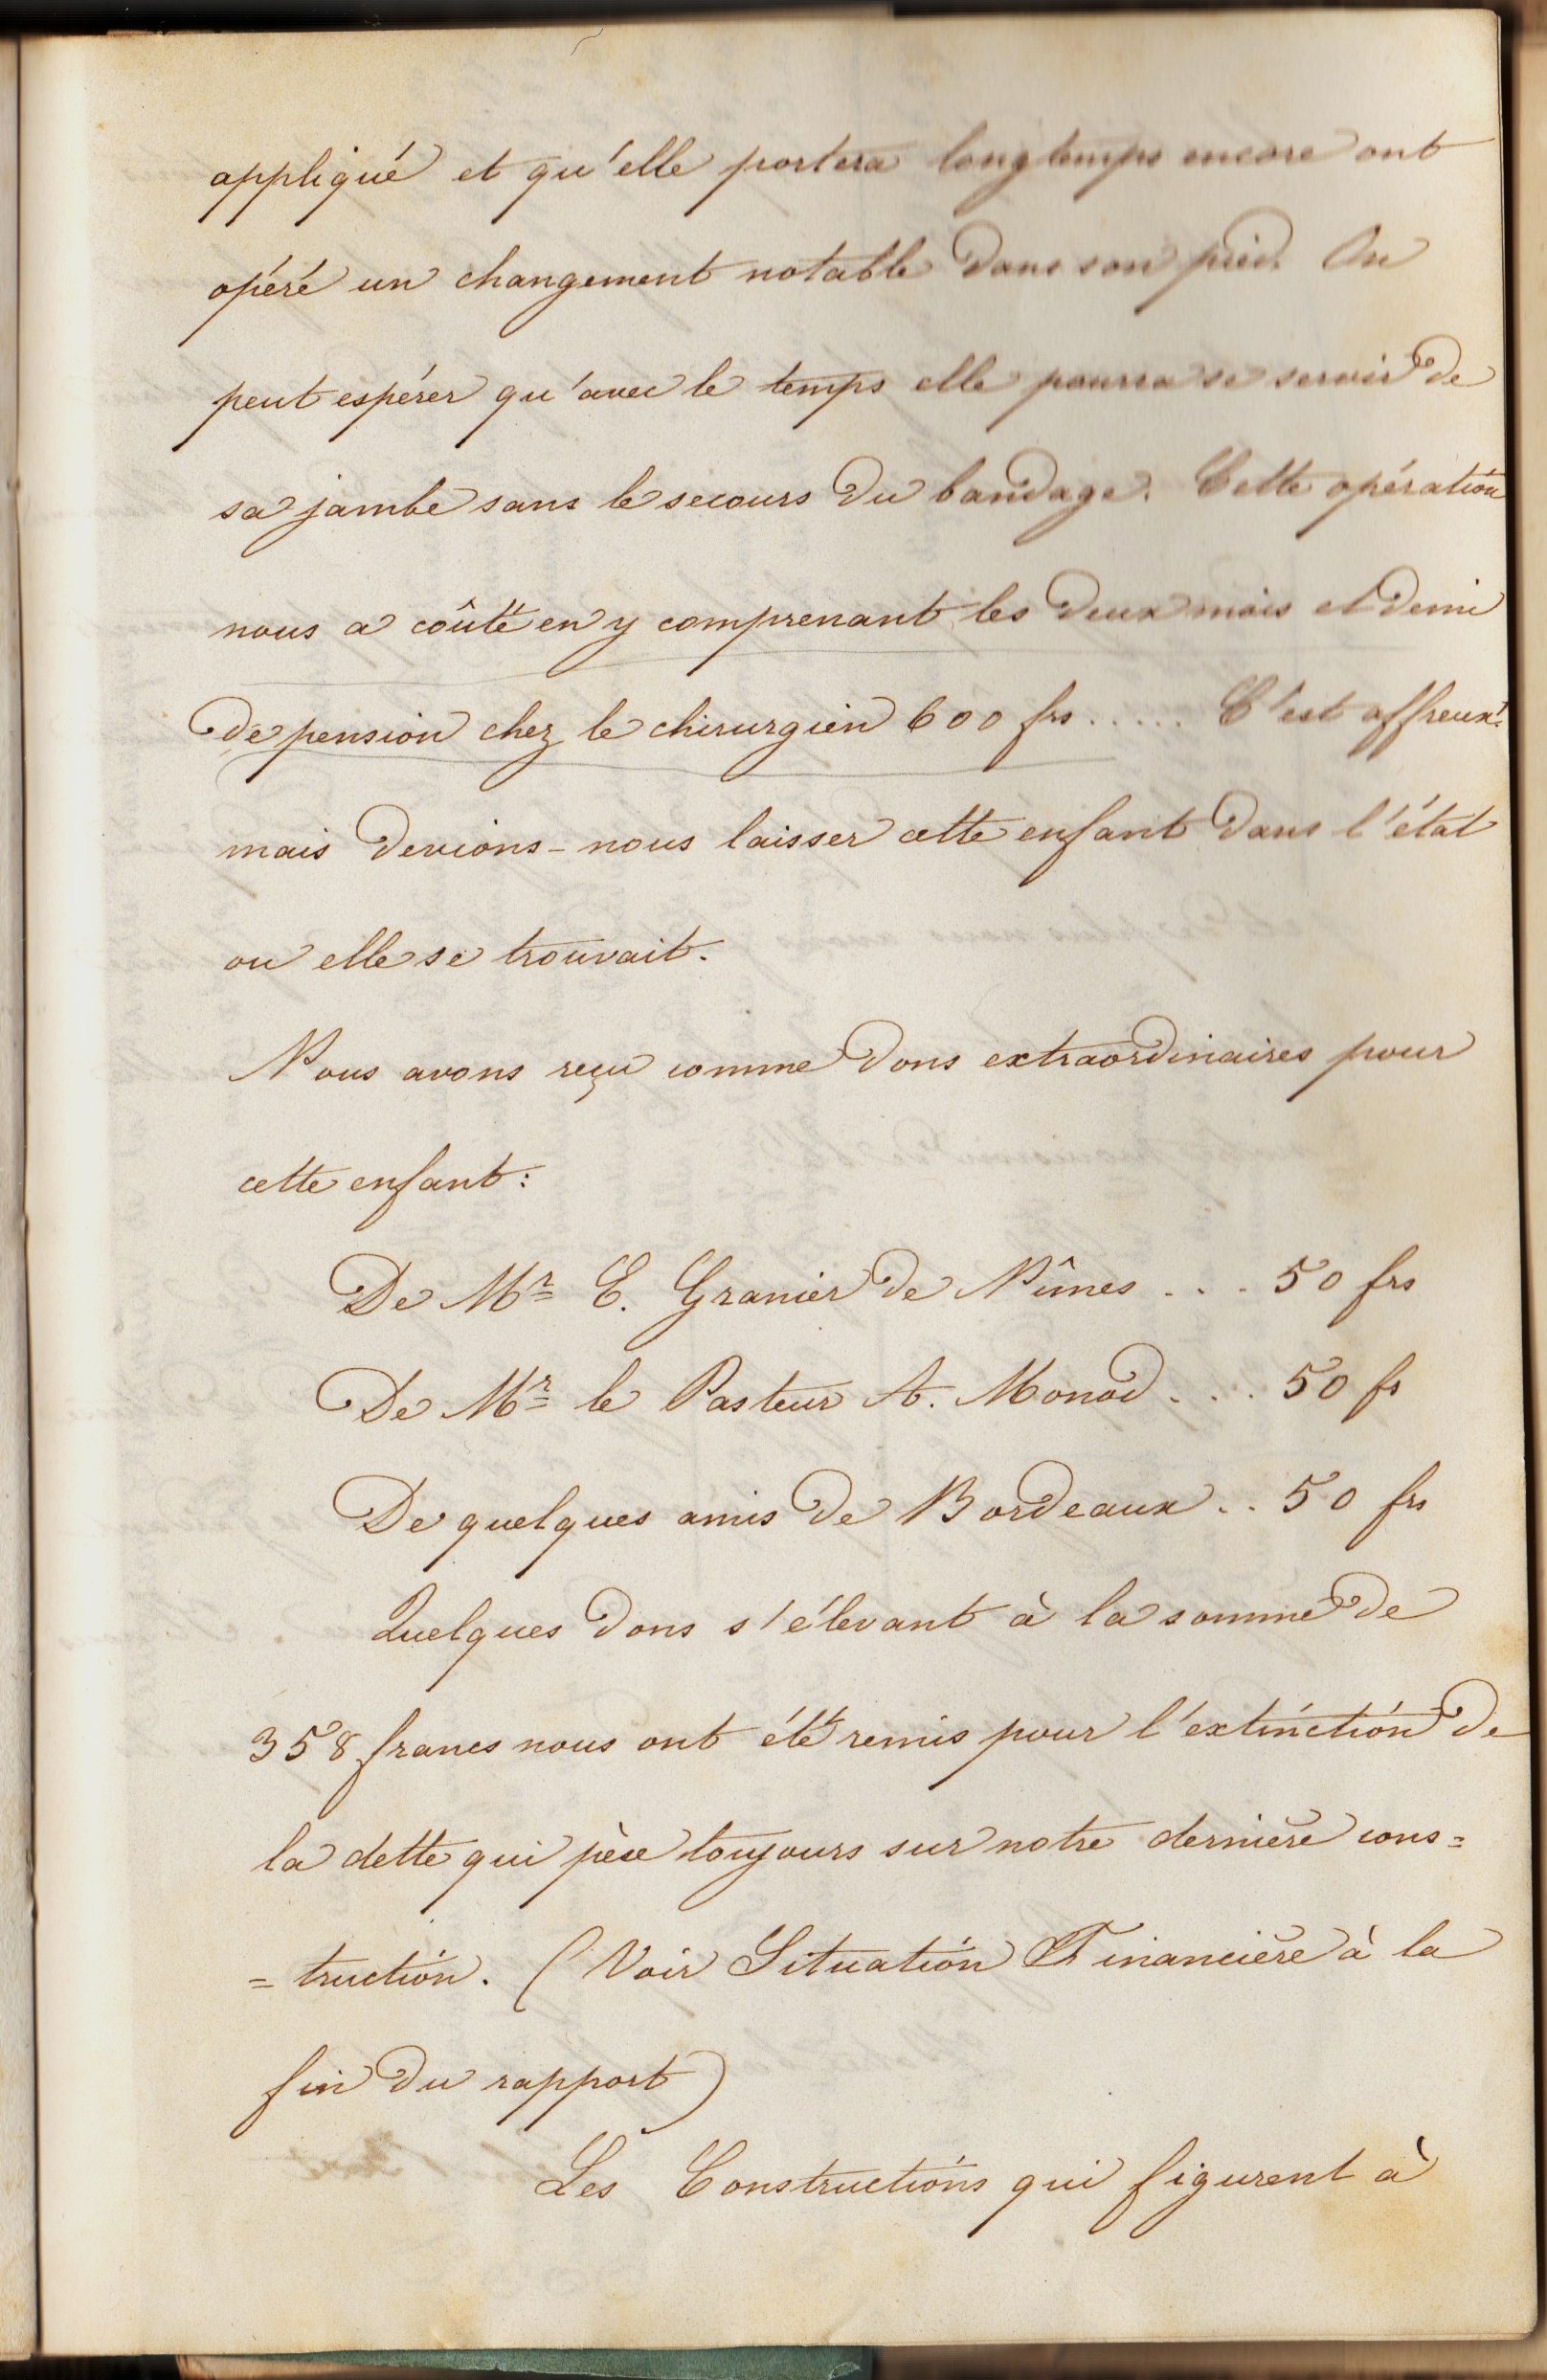 appliqué et qu'elle portera longtemps encore ont
opéré un changement notable dans son pied. On
peut espérer qu'avec le temps elle pourra se servir de
sa jambe sans le secours du bandage. Cette opération
nous a coûté en y comprenant les deux mois et demi
de pension chez le chirurgien 600 frs ..... C'est affreux!
mais devions-nous laisser cette enfant dans l'état
ou elle se trouvait.
Nous avons reçu comme dons extraordinaires pour
cette enfant:
De Mr E. Granier de Nîmes ... 50 frs
De Mr le Pasteur A. Monod ... 50 fs
De quelques amis de Bordeaux .. 50 frs
Quelques dons s'élevant à la somme de
358 francs nous ont été remis pour l'extinction de
la dette qui pèse toujours sur notre dernière cons=
=truction. (Voir Situation Financière à la
fin du rapport)
Les Constructions qui figurent à